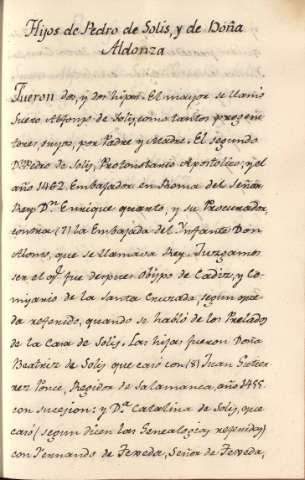 Hijos de Pedro de Solis, y de Doña
Aldonza
Fueron dos, y dos hijas. El mayor se llamó
Suero Alfonso de Solis, como tantos progeni-
tores suyos, por Padre y Madre. El segundo
Dn. Pedro de Solis, Protonotario Apostolico, y el
año 1462. Embajador en Rroma del Señor
Rey Dn. Enrique quarto, y su Procurador,
contra (7) la Embajada del Infante Don
Alonso, que se llamava Rey. Juzgamos
ser el q.e fue despues Obispo de Cadiz, y Co-
misario de la Santa Cruzada segun que-
da referido, quando se habló de los Prelados
de la Casa de Solis. Las hijas fueron Doña
Beatriz de Solis que casó con (8) Juan Gutier-
rez Ponce, Regidor de Salamanca, año 1455.
con sucesion: y D.a Catalina de Solis, que
casó (segun dicen las Genealogias referidas)
con Fernando de Texeda, Señor de Texeda,